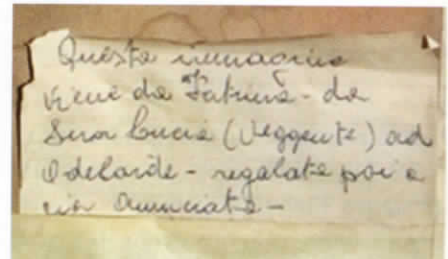 Questa immagine
viene da Fatima - da
Suor Lucia (Veggente) ad
Adelaide - regalata poi a
Annunciata -